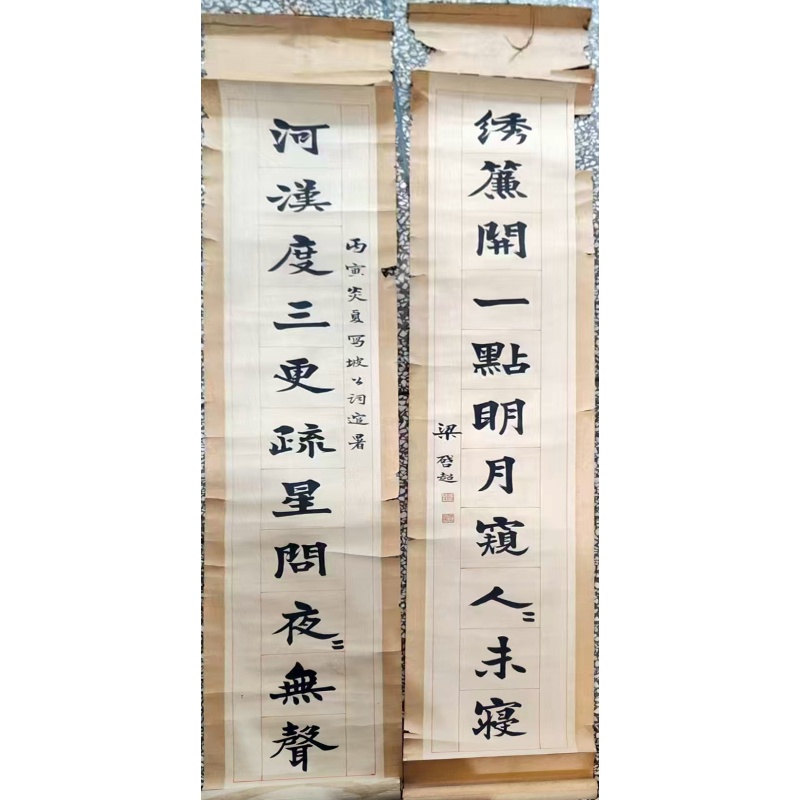 绣簾開一點明月窺人〻未寢
梁啓超
丙寅炎夏写坡公詞逭暑
河漢度三更疏星問夜〻無聲